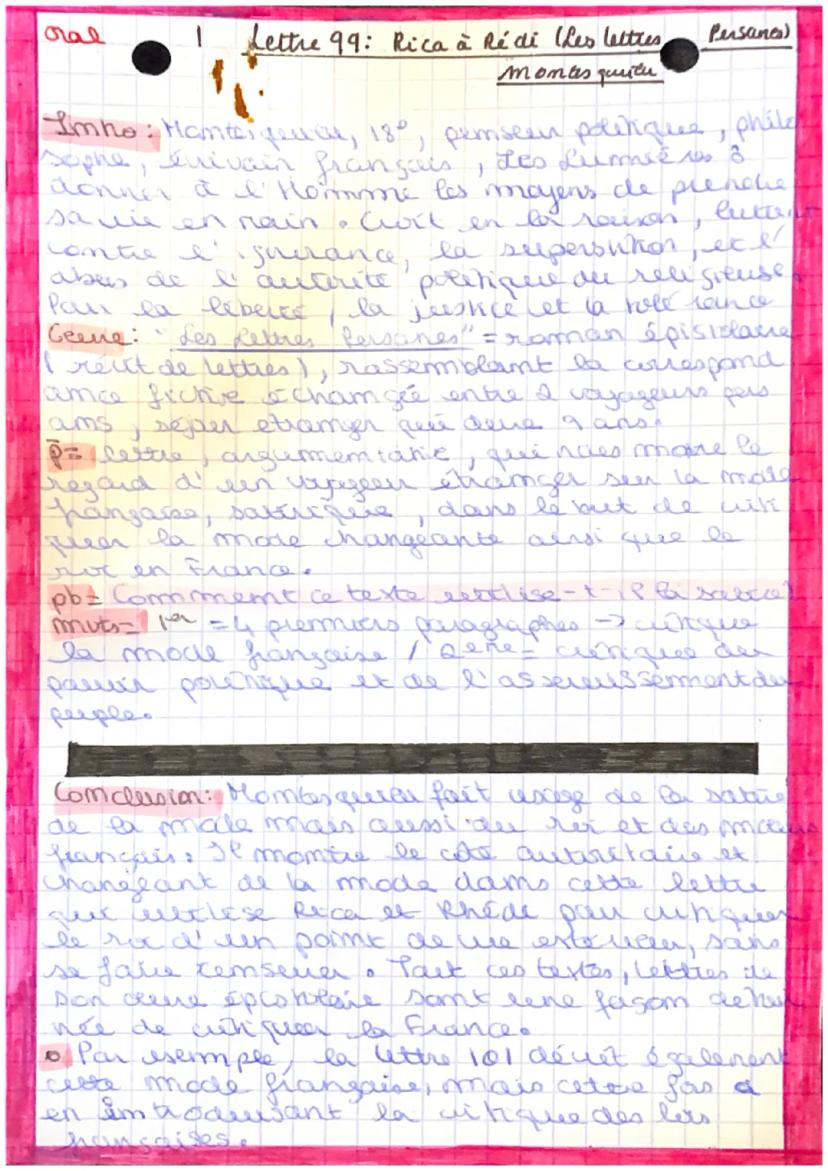 Oral 1 Lettre 99: Rica à Rédi (Les lettres Persanes)
Montesquieu
Intro: Montesquieu, 18°, penseur politique, philo
sophe, écrivain français, Les Lumières :
donner à l'Homme les moyens de prendre
sa vie en main. Croit en la raison, lutte
contre l'ignorance, la superstition, et l'
abus de l'autorité politique ou religieuse.
Pour la liberté, la justice et la tolérance
Oeuvre: "Les Lettres Persanes" = roman épistolaire
(récit de lettres), rassemblant la correspond
ance fictive échangée entre 2 voyageurs pers
ans, séjour etranger qui dure 9 ans.
p= lettre, argumentative, qui nous montre le
regard d'un voyageur étranger sur la mode
française, satirique, dans le but de criti
quer la mode changeante ainsi que le
roi en France.
pb= Comment ce texte utilise-t-il la satire
mvts= 1er = 4 premiers paragraphes -> critique
la mode française / 2eme= critique du
pouvoir politique et de l'asservissement du
peuple.
Conclusion: Montesquieu fait usage de la satire
de la mode mais aussi du roi et des moeurs
français. Il montre le côté autoritaire et
changeant de la mode dans cette lettre
que utilise Rica et Rhédi pour critiquer
le roi d'un point de vue extérieur, sans
se faire censurer. Tout ces textes, lettres de
son oeuvre épistolaire sont une façon detour
née de critiquer la France.
Par exemple, la lettre 101 décrit également
cette mode française, mais cette fois
en introduisant la critique des lois
françaises.